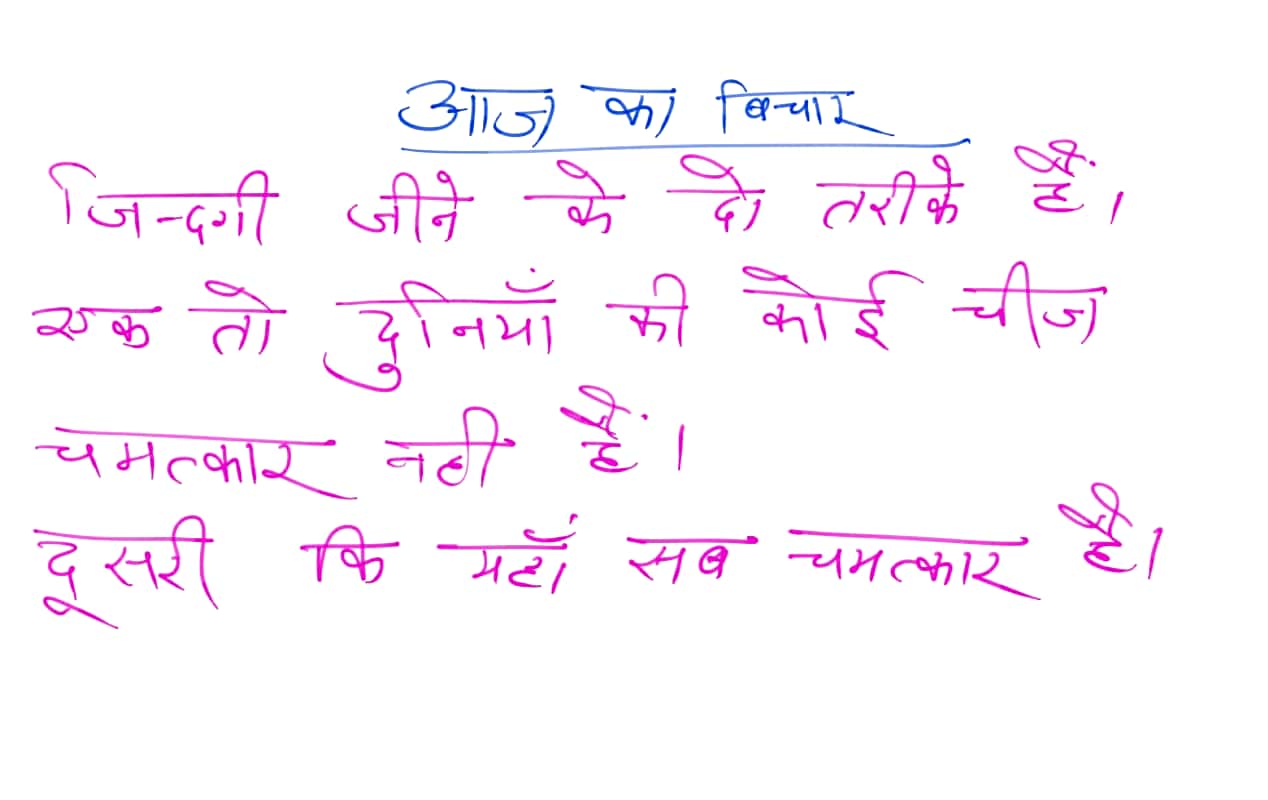 आज का बिचार
जिन्दगी जीने के दो तरीके हैं।
एक तो दुनियाँ की कोई चीज
चमत्कार नही हैं।
दूसरी कि यहाँ सब चमत्कार है।